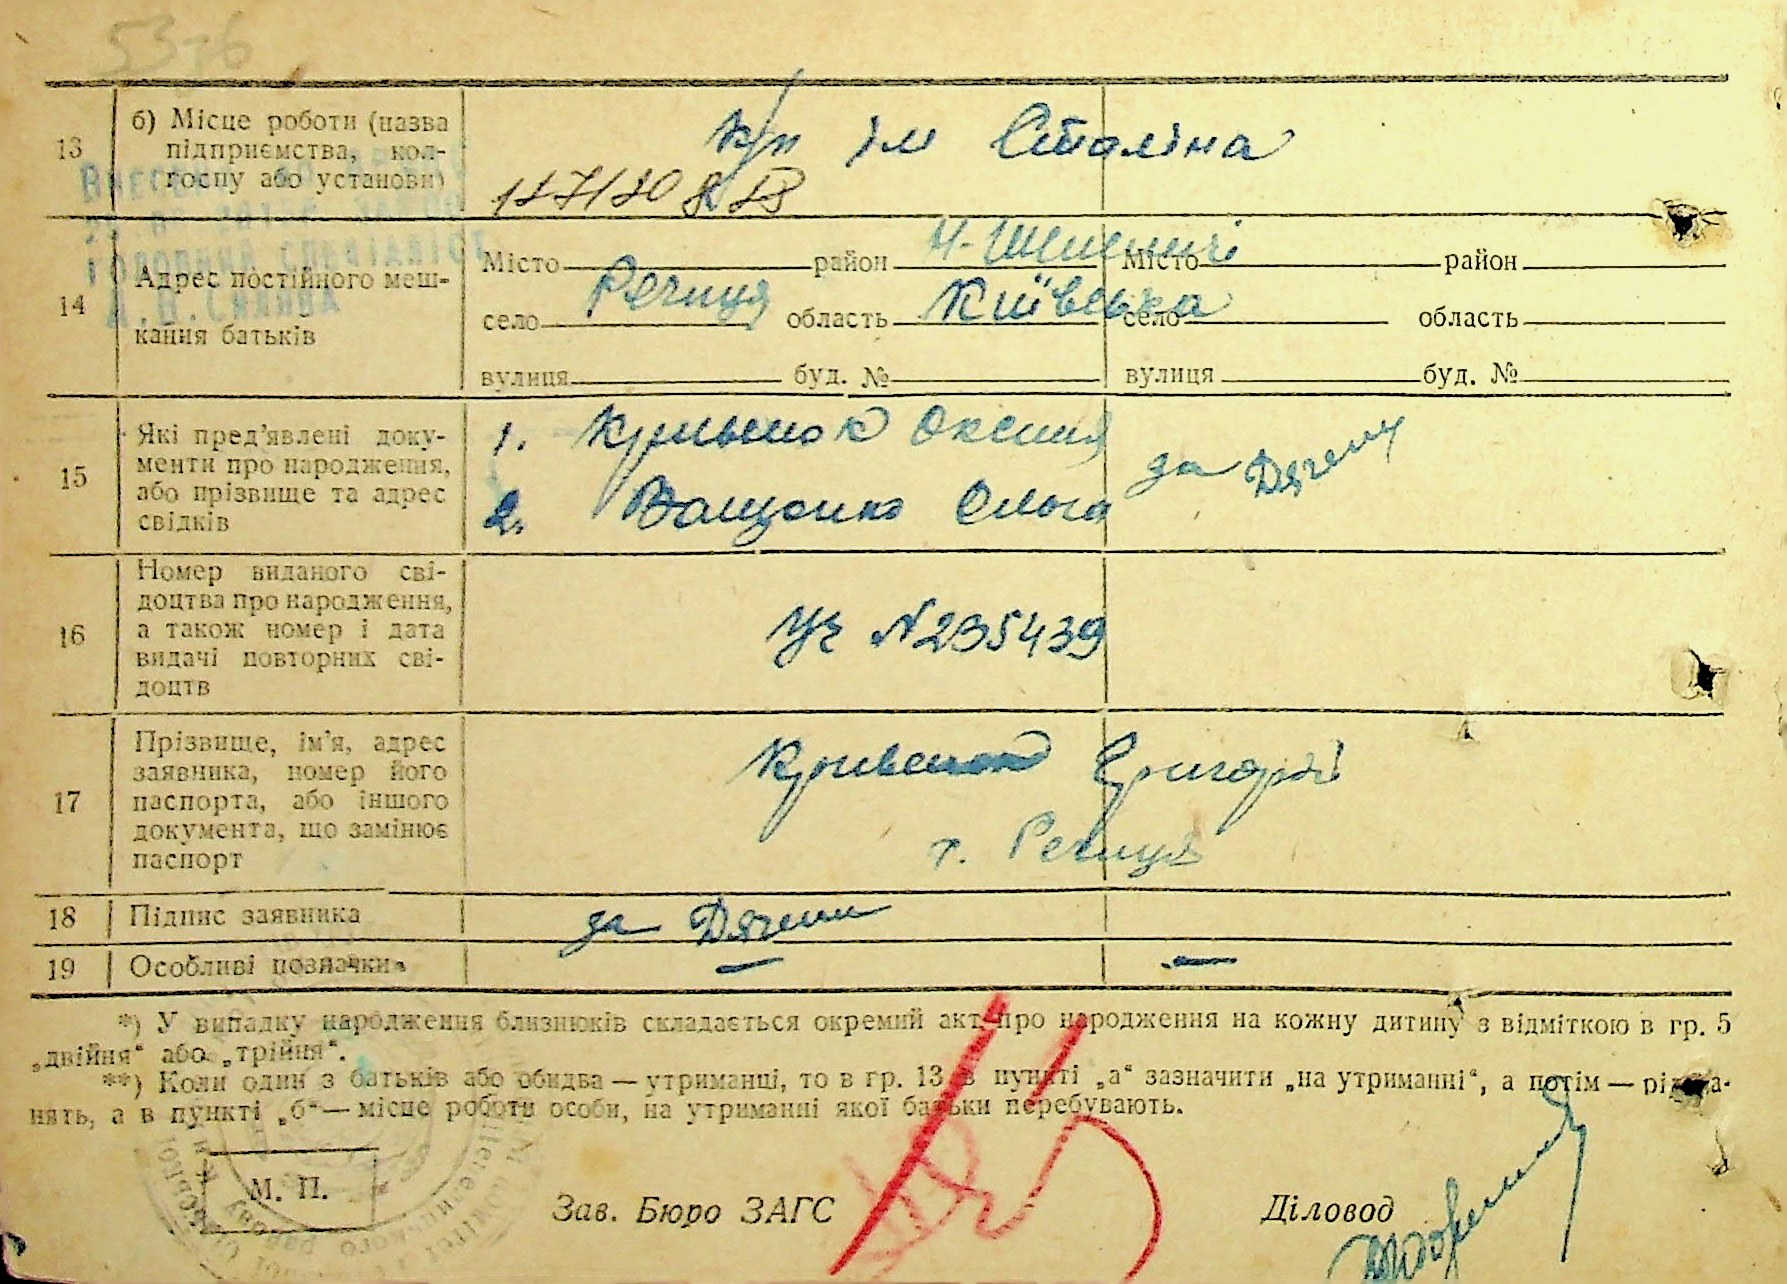 13
б) Місце роботи (назва
підприємства, кол-
госпу або установи)
к/п ім Сталіна
14
Адрес постійного меш-
кання батьків
Місто район Н-Шепеличі Місто район
село Речиця область Київська село область
вулиця буд. № вулиця буд. №
15
Які пред'явлені доку-
менти про народження,
або прізвище та адрес
свідків
1. Оксенія
2. Ващенко Ольга
за
16
Номер виданого сві-
доцтва про народження,
а також номер і дата
видачі повторних сві-
доцтв
N235439
17
Прізвище, ім'я, адрес
заявника, номер його
паспорта, або іншого
документа, що замінює
паспорт
Григорій
Речиця
18 Підпис заявника
за
19 Особливі позначки
*) У випадку народження близнюків складається окремий акт про народження на кожну дитину з відміткою в гр. 5
„двійня“ або „трійня“.
**) Коли один з батьків або обидва — утриманці, то в гр. 13 в пункті „а“ зазначити „на утриманні“, а потім —
нять, а в пункті „б“ — місце роботи особи, на утриманні якої батьки перебувають.
М. П.
Зав. Бюро ЗАГС
Діловод